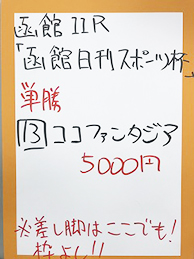 函館11R
「函館日刊スポーツ杯」
単勝
13 ココファンタジア
5000円
※差し脚はここでも!
枠よし!!